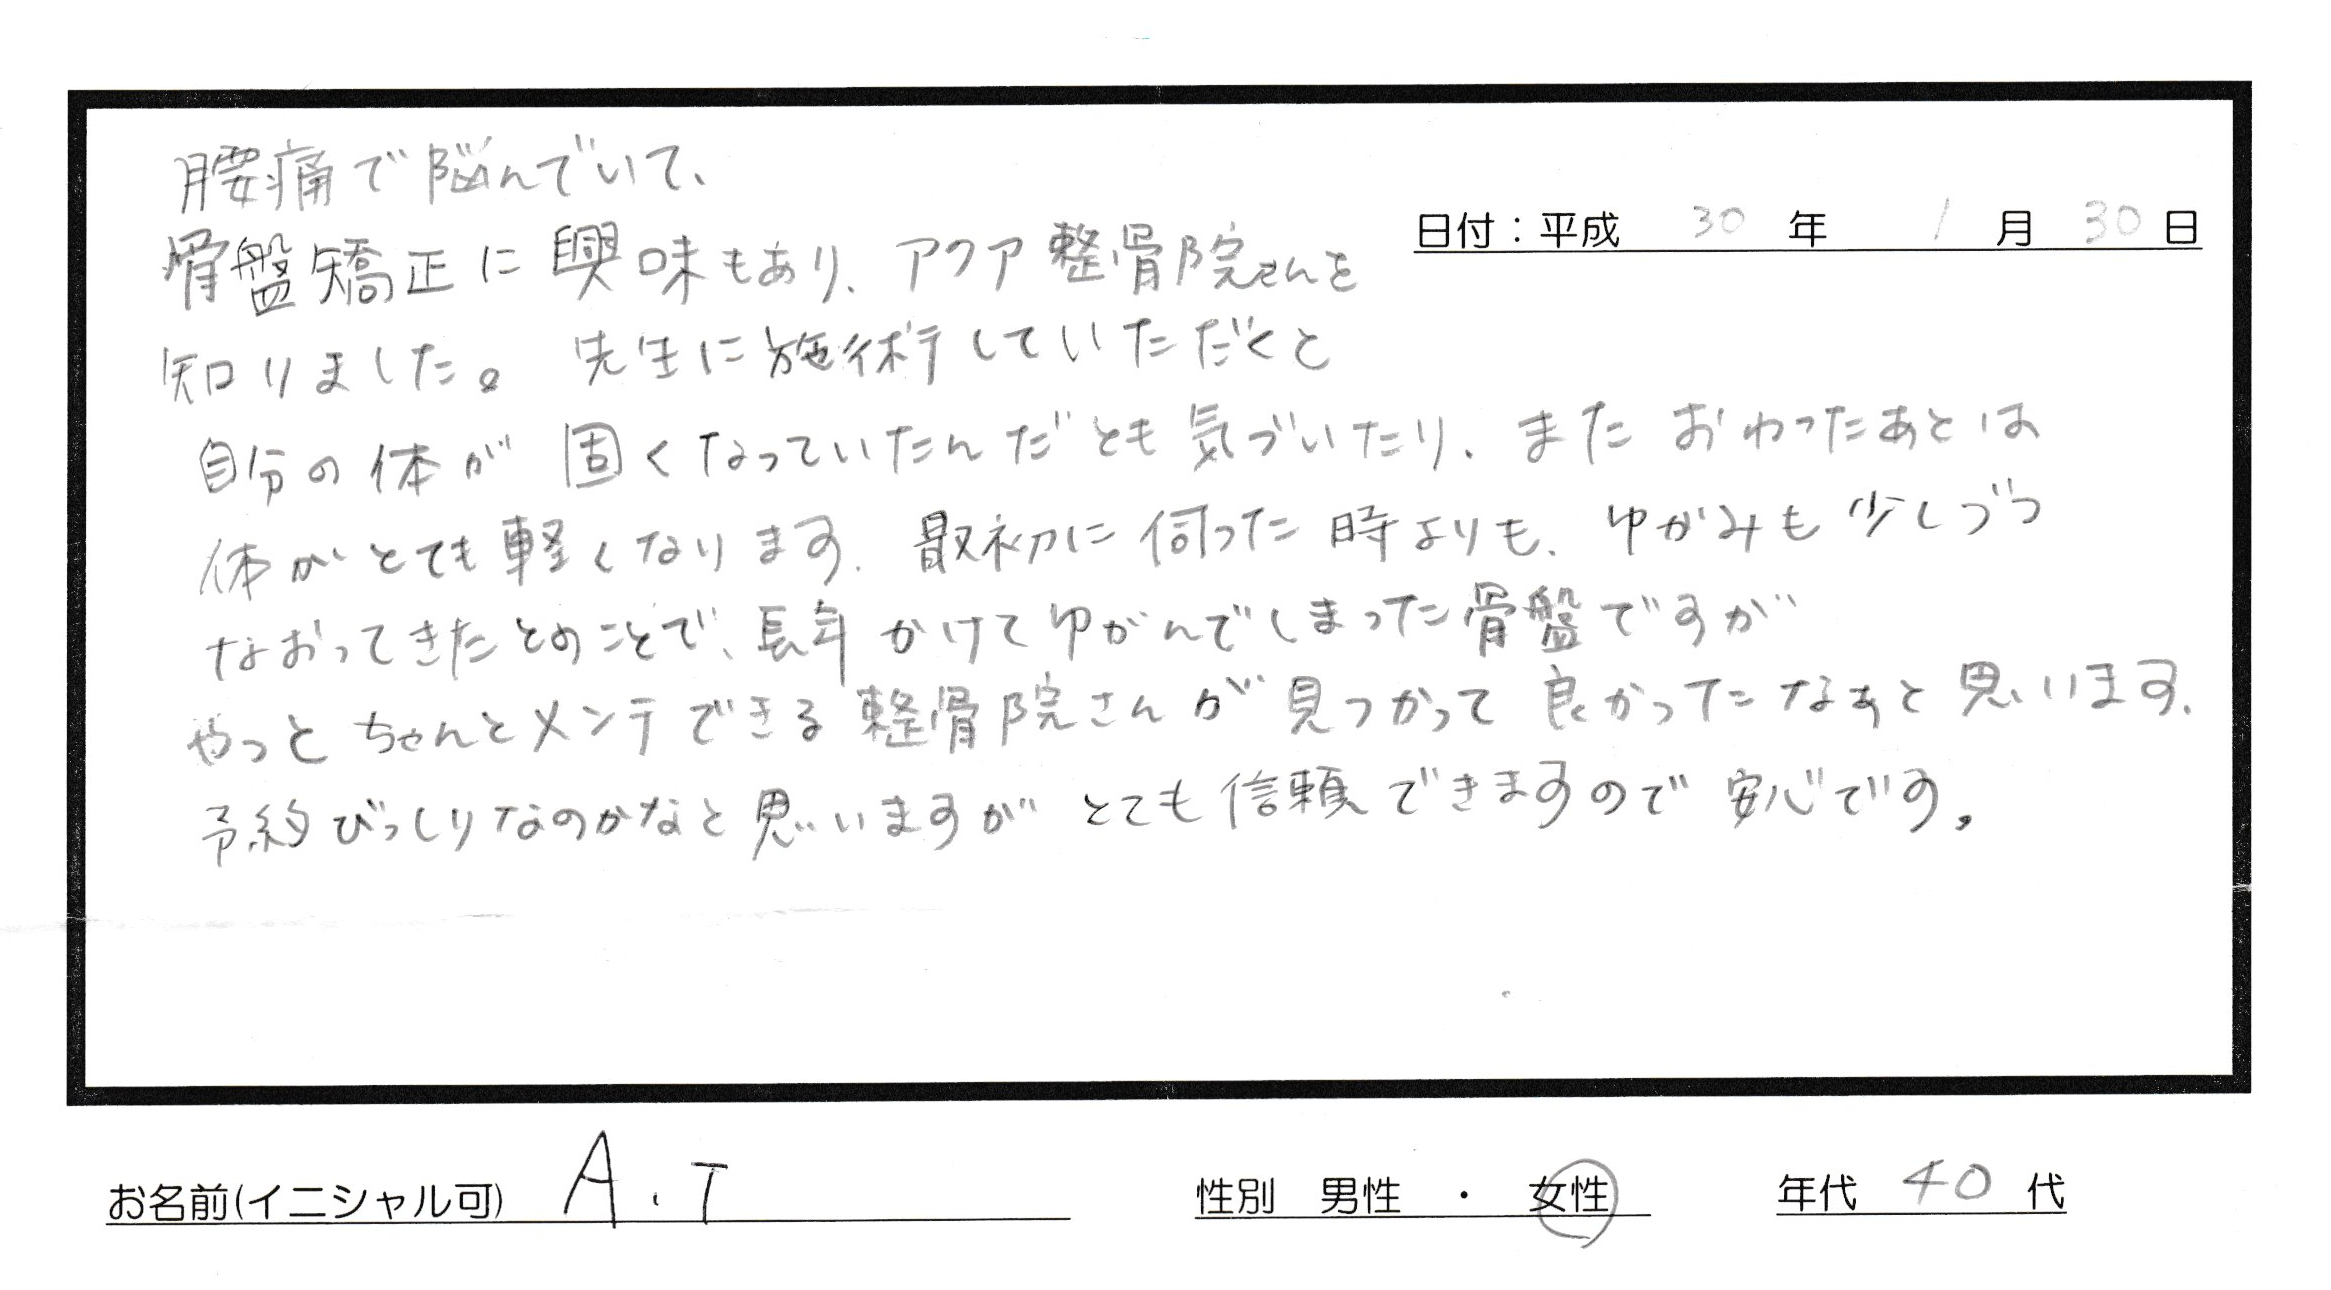 腰痛で悩んでいて、
日付：平成 30 年 1 月 30 日
骨盤矯正に興味もあり、アクア整骨院さんを
知りました。先生に施術していただくと
自分の体が固くなっていたんだとも気づいたり、またおわったあとは
体がとても軽くなります。最初に伺った時よりも、ゆがみも少しづつ
なおってきたとのことで、長年かけてゆがんでしまった骨盤ですが
やっとちゃんとメンテできる整骨院さんが見つかって良かったなぁと思います。
予約びっしりなのかなと思いますがとても信頼できますので安心です。
お名前(イニシャル可) A.T 性別 男性 ・ 女性 年代 40 代